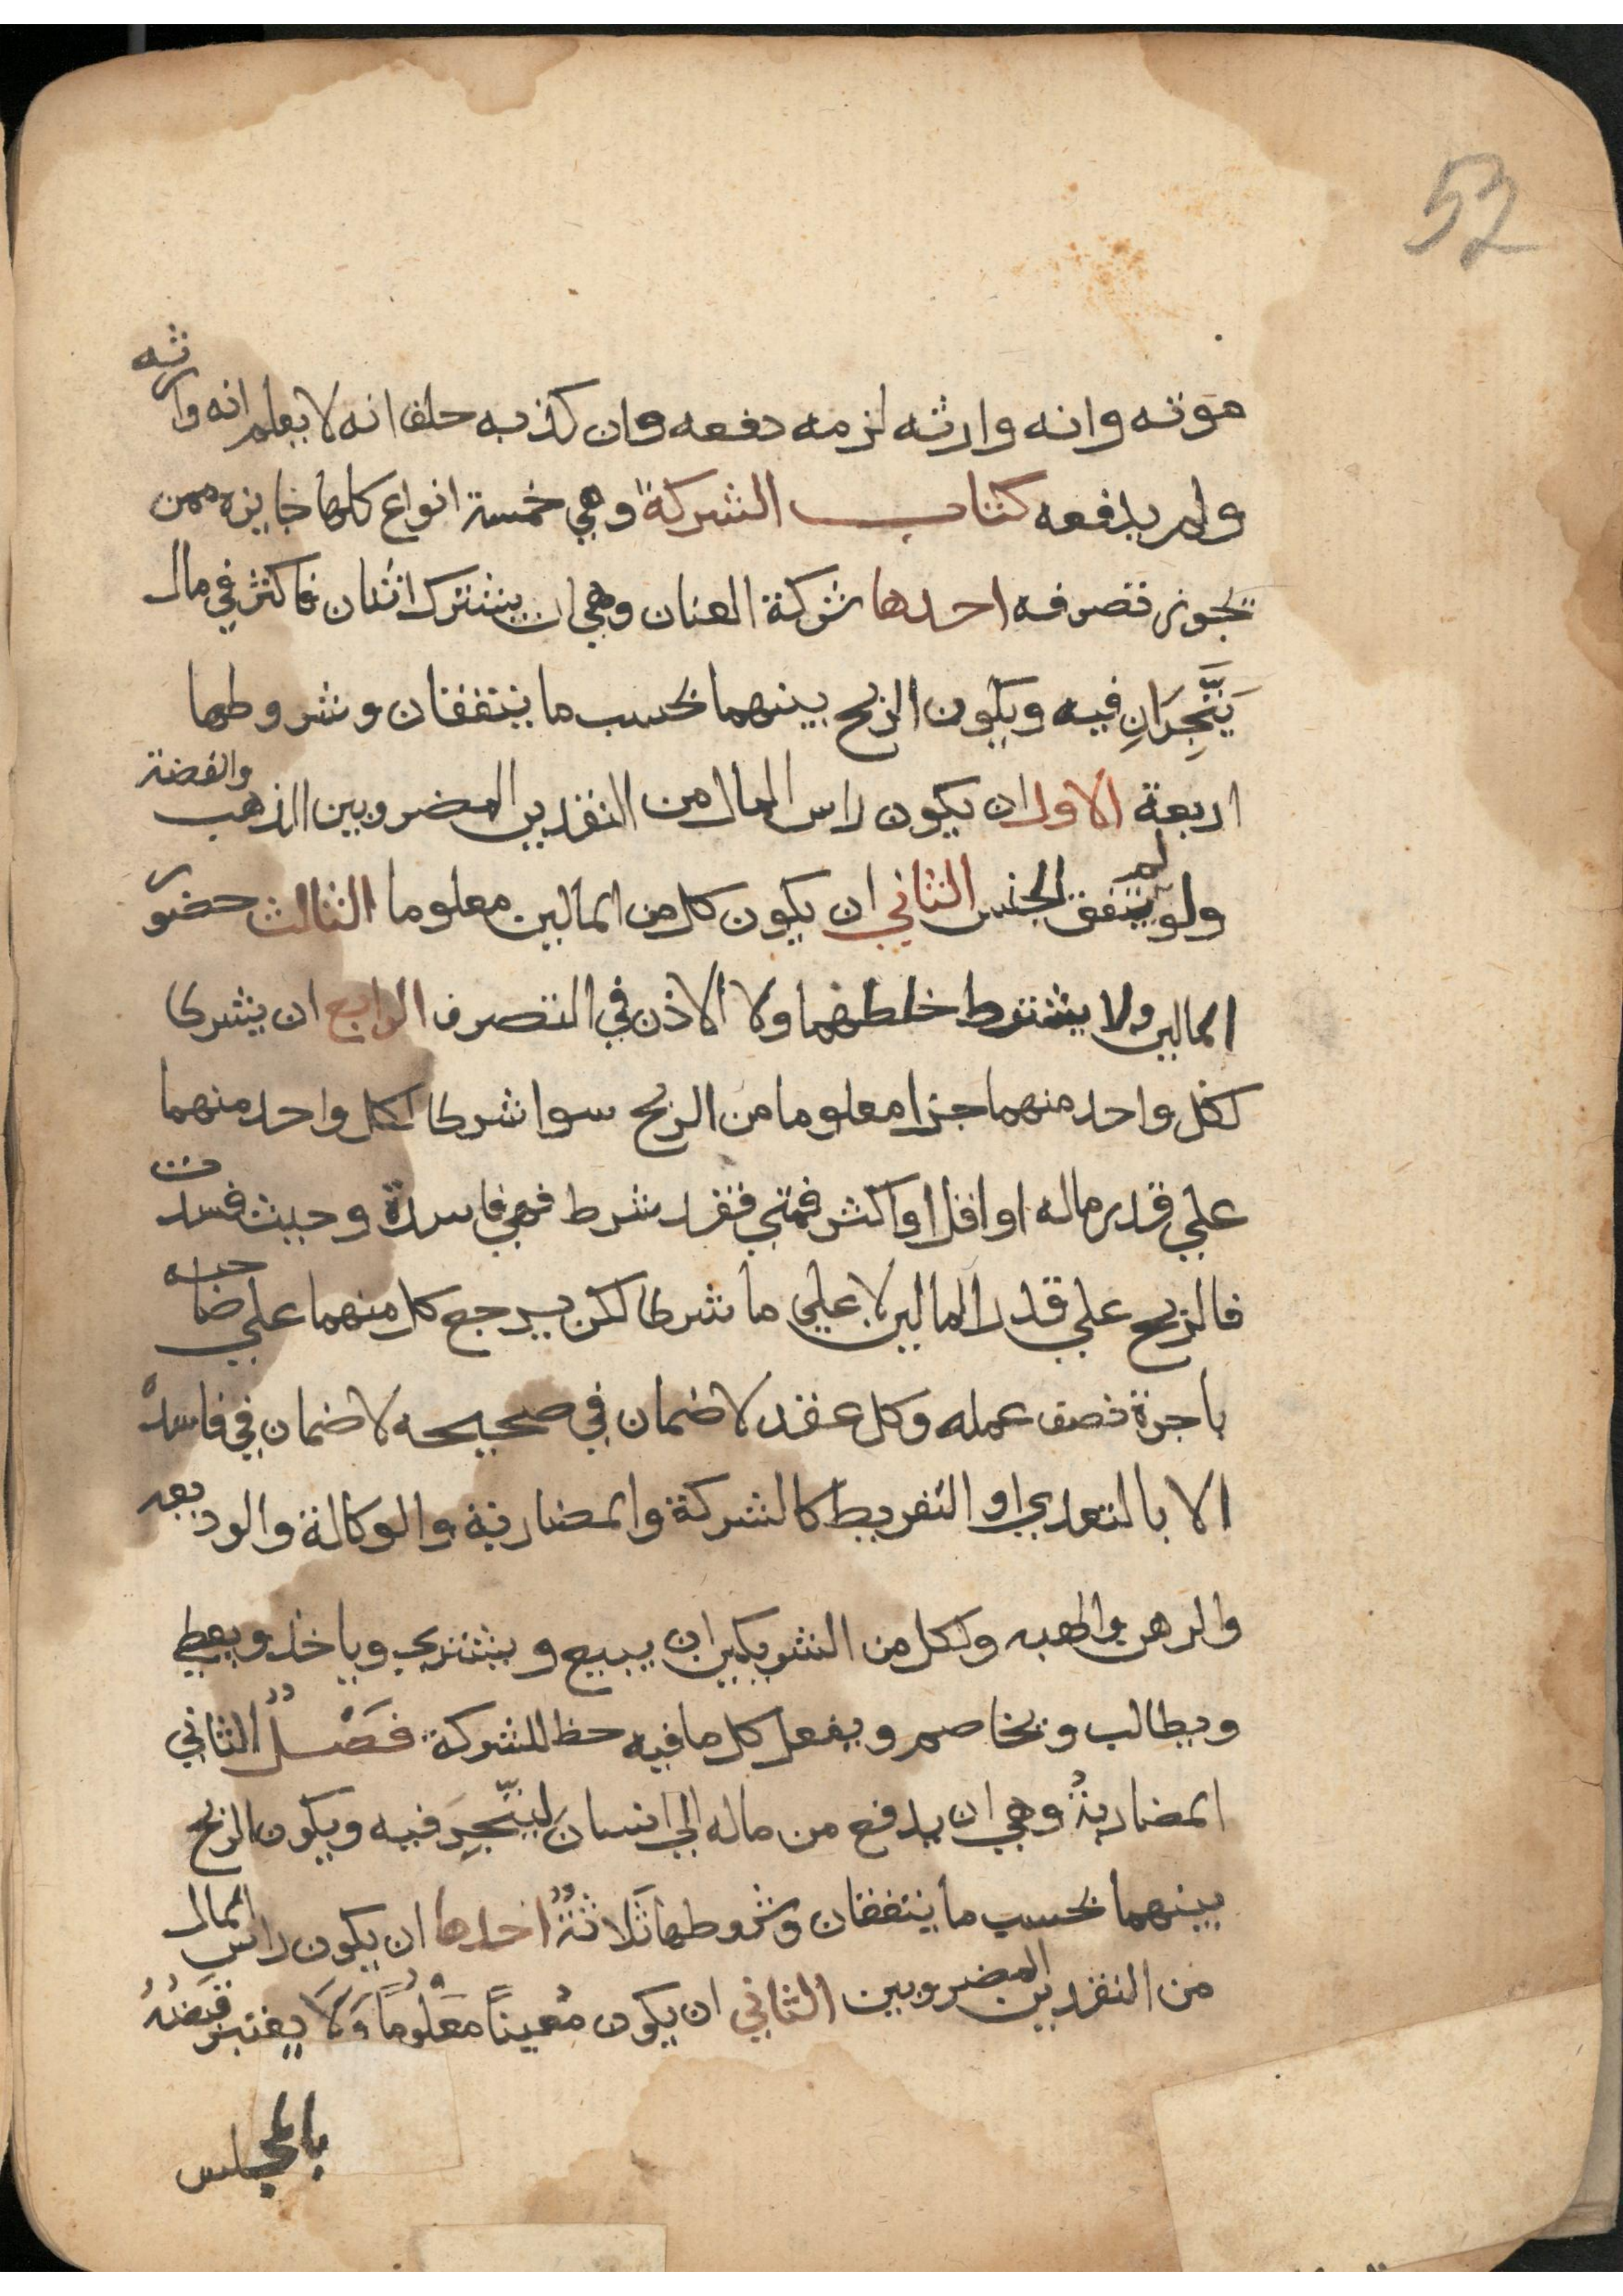 52
موته وانه وارثه لزمه دفعه وان كذبه حلف انه لا يعلم انه وارثه
ولم يدفعه كتاب الشركة وهي خمسة انواع كلها جايزه ممن
يجوز تصرفه احدها شركة العنان وهي ان يشترك اثنان فاكثر في مال
يَتَّجِرَانِ فيه ويكون الربح بينهما بحسب ما يتفقان وشروطها
اربعة الاول ان يكون راس المال من النقدين المضروبين الذهب والفضة
ولو لم يتفق الجنس الثاني ان يكون كل من المالين معلوما الثالث حضور
المالين ولا يشترط خلطهما ولا الاذن في التصرف الرابع ان يشرطا
لكل واحد منهما جزا معلوما من الربح سوا شرطا لكل واحد منهما
علي قدر ماله او اقل او اكثر فمتي فقد شرط فهي فاسدة وحيث فسدت
فالربح علي قدر المالين لا علي ما شرطا لكن يرجع كل منهما علي صاحبه
باجرة نصف عمله وكل عقد لا ضمان في صحيحه لا ضمان في فاسده
الا بالتعدي او التفريط كالشركة والمضاربة والوكالة والوديعه
والرهن والهبه ولكل من الشريكين ان يبيع ويشتري وياخذ ويعطي
ويطالب ويخاصم ويفعل كل ما فيه حظ للشركة فَصْلٌ الثاني
المضاربةُ وهي ان يدفع من ماله الي انسان ليتَّجِرَ فيه ويكون الربح
بينهما بحسب ما يتفقان وشروطها ثَلاثةٌ احدها ان يكون راس المال
من النقدين المضروبين الثاني ان يكون مُعيناً معْلُوماً وَلَا يعْتبر قبضُهُ
بالمجلس